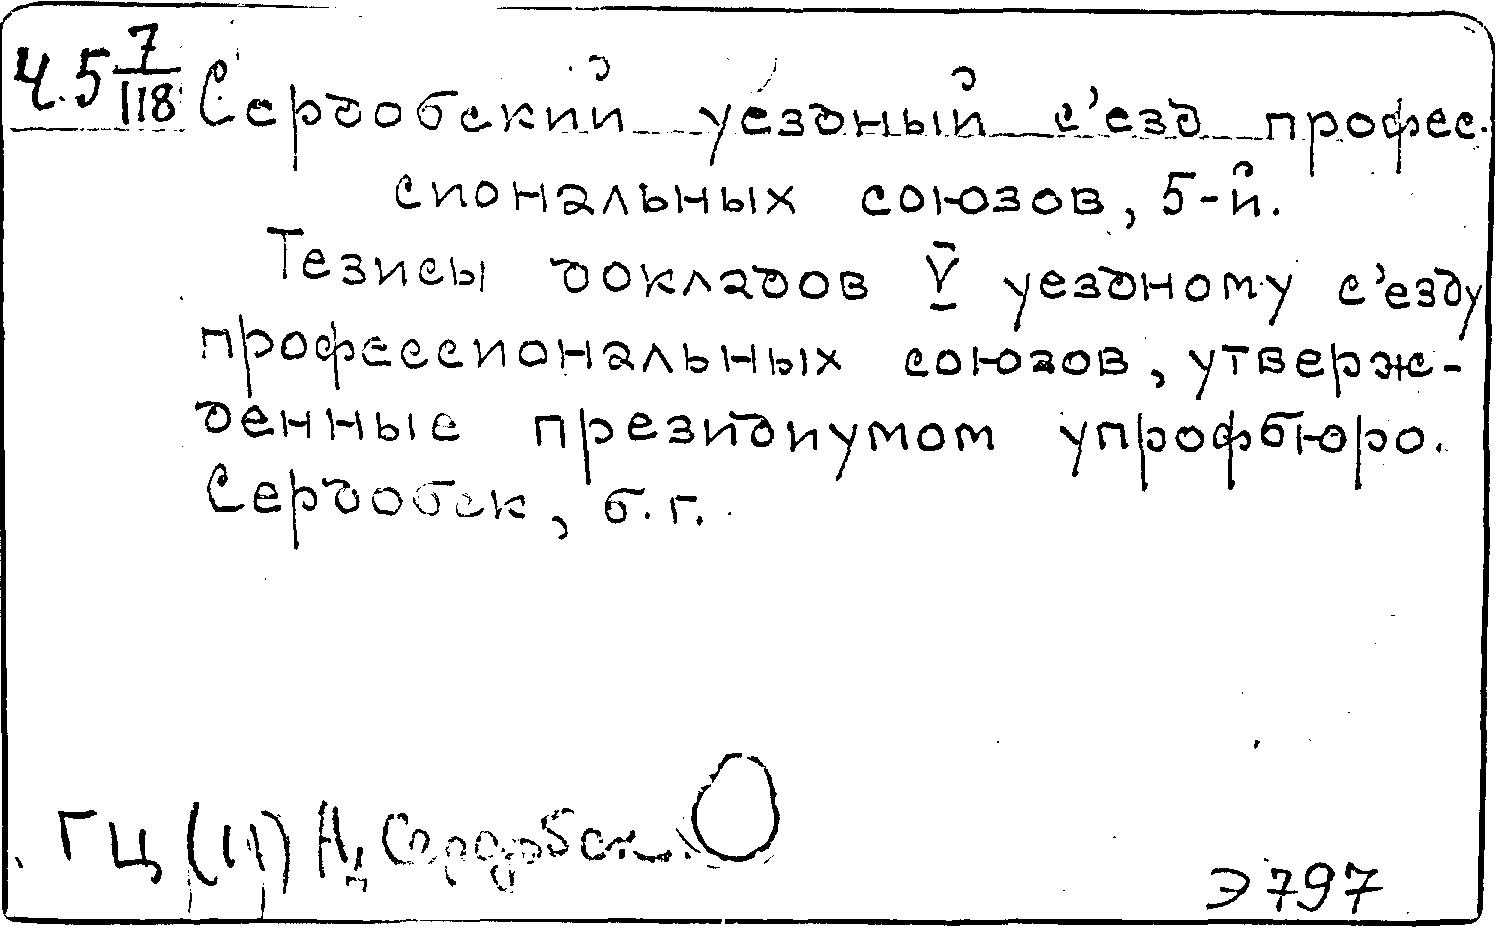 Ч.5 7/118 Сердобский уездный с'езд профес-
сиональных союзов, 5-й.
Тезисы докладов V уездному с'езду
профессиональных союзов, утверж-
денные президиумом упрофбюро.
Сердобск, б.г.
ГЦ (11) Сердобск.
Э797